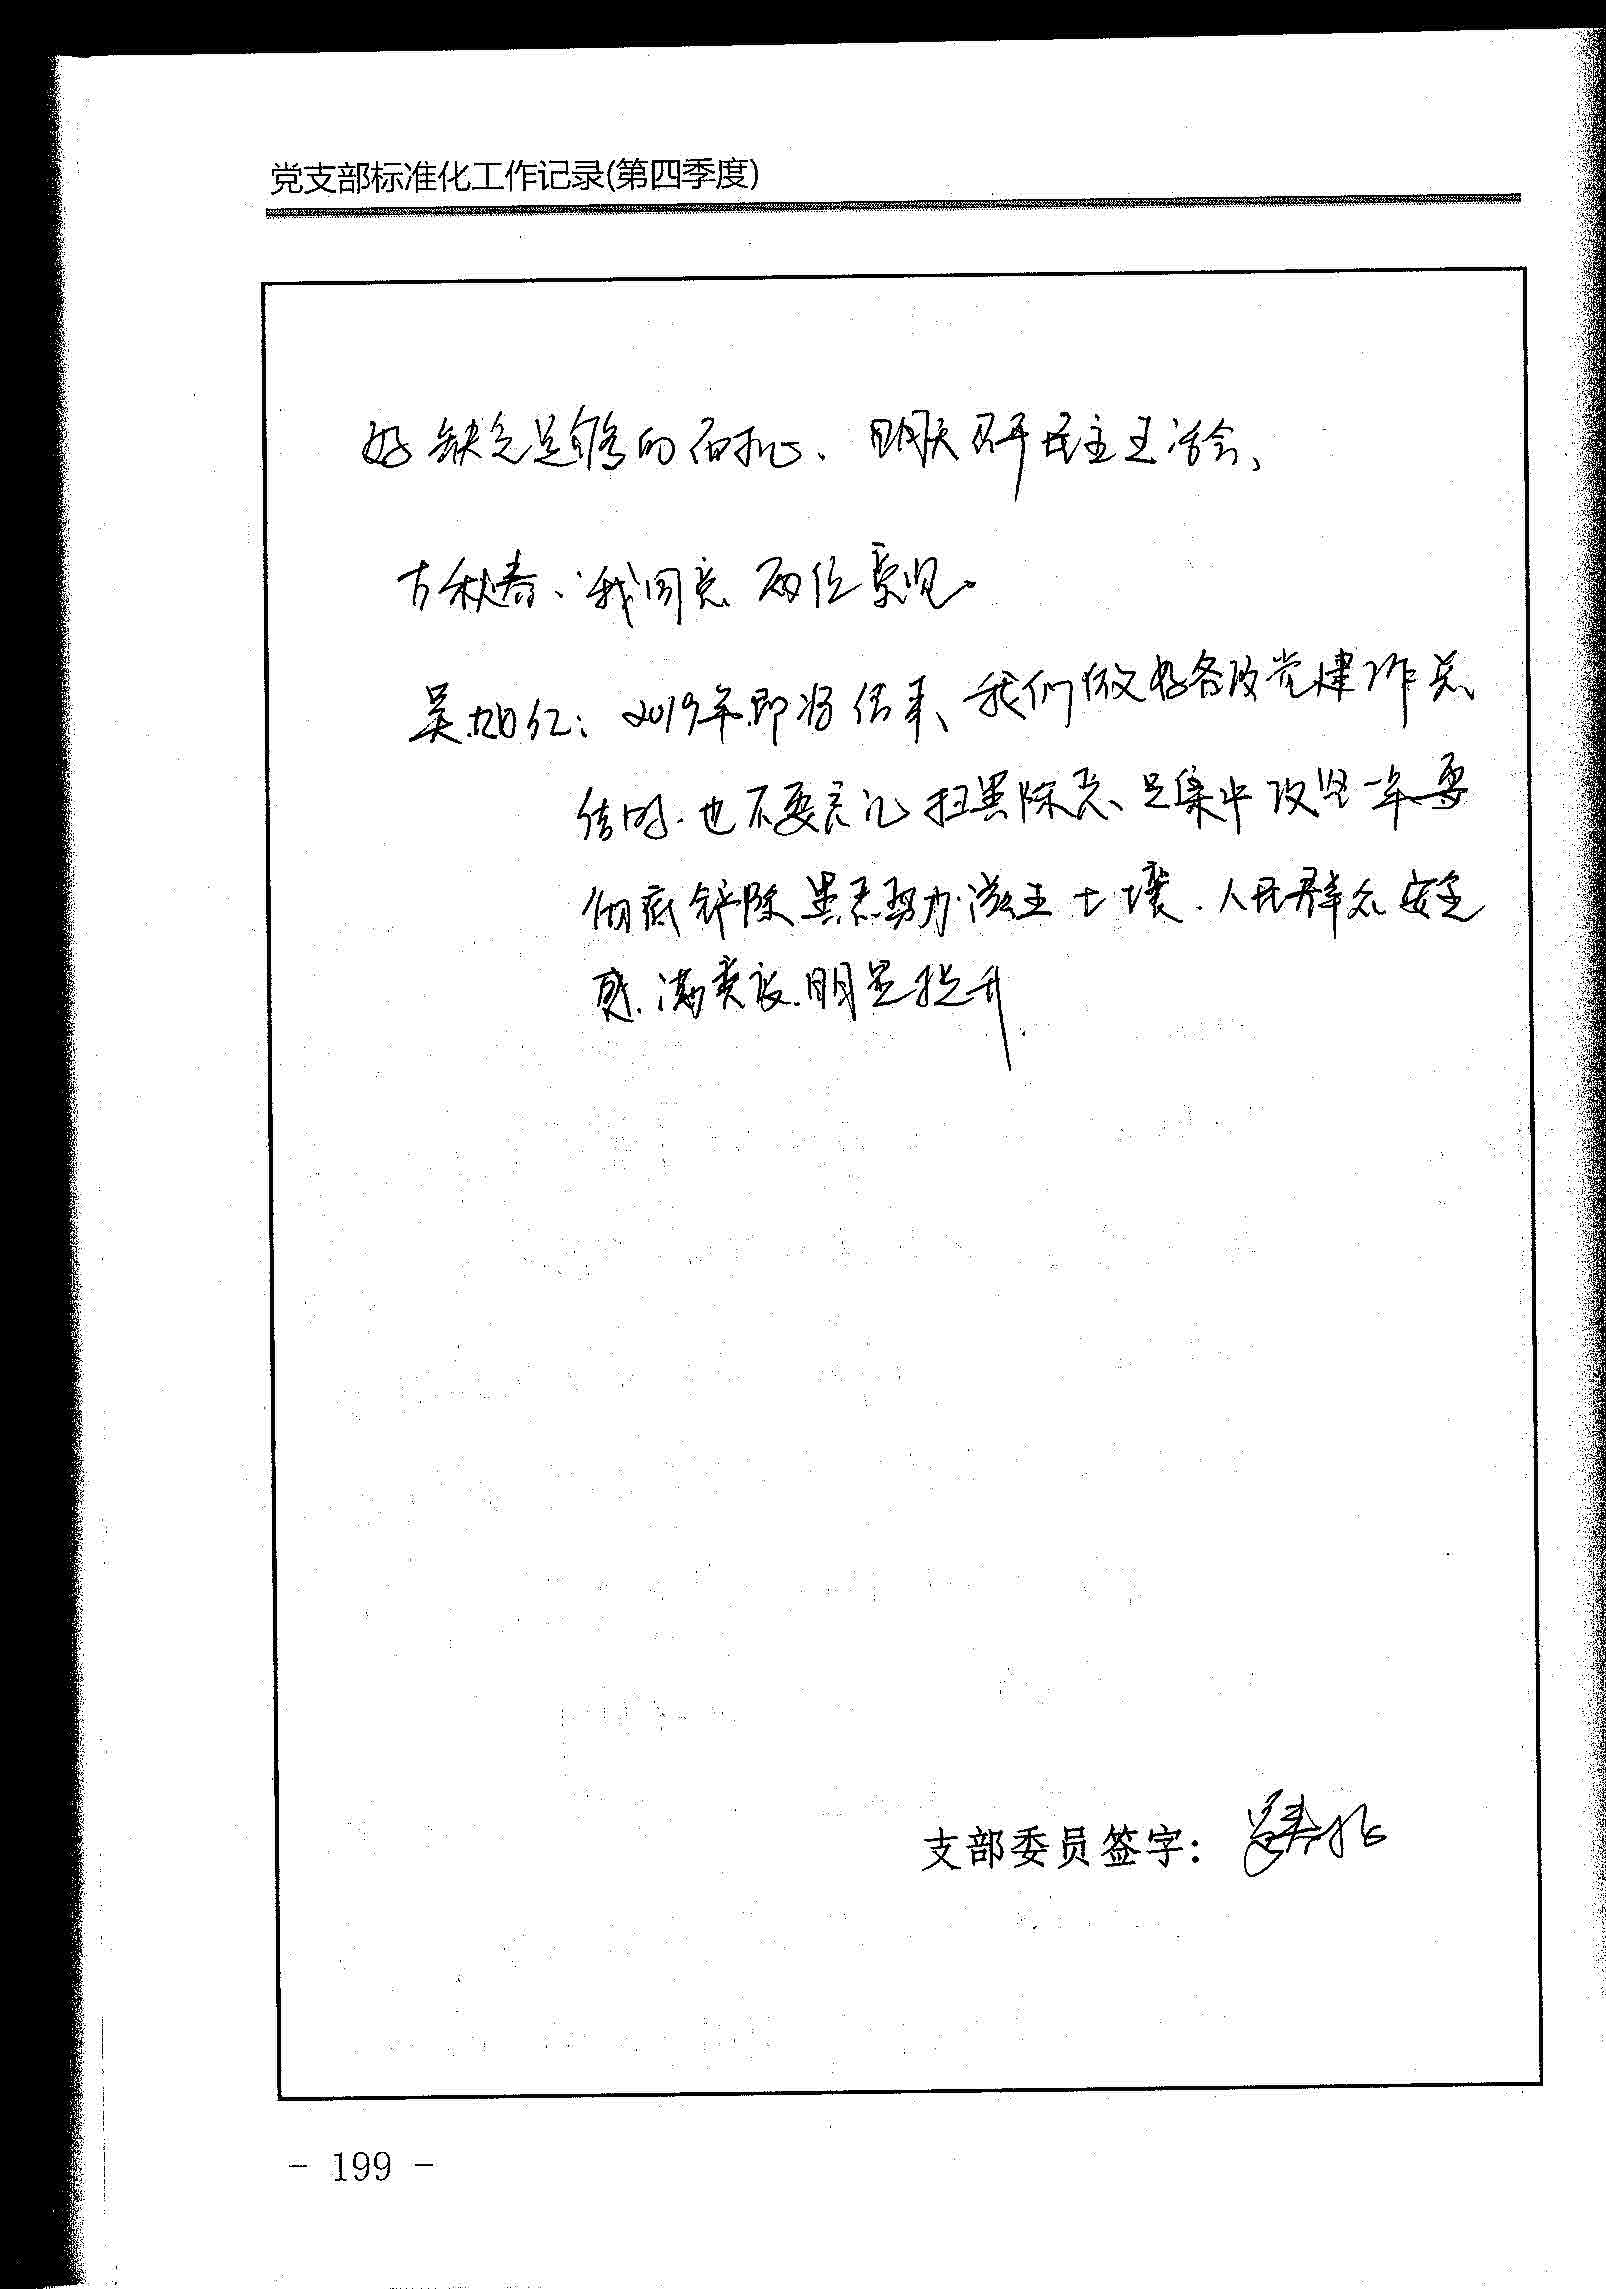 党支部标准化工作记录(第四季度)
好 缺乏足够的耐心、明天召开民主生活会、
古秋春、我同意两位意见。
吴旭红：2019年即将结束、我们做好各项党建工作总
结时.也不要忘记扫黑除恶、是集中攻坚一年要
彻底铲除黑恶势力滋生土壤.人民群众安全
感.满意度.明显提升.
支部委员签字：
- 199 -